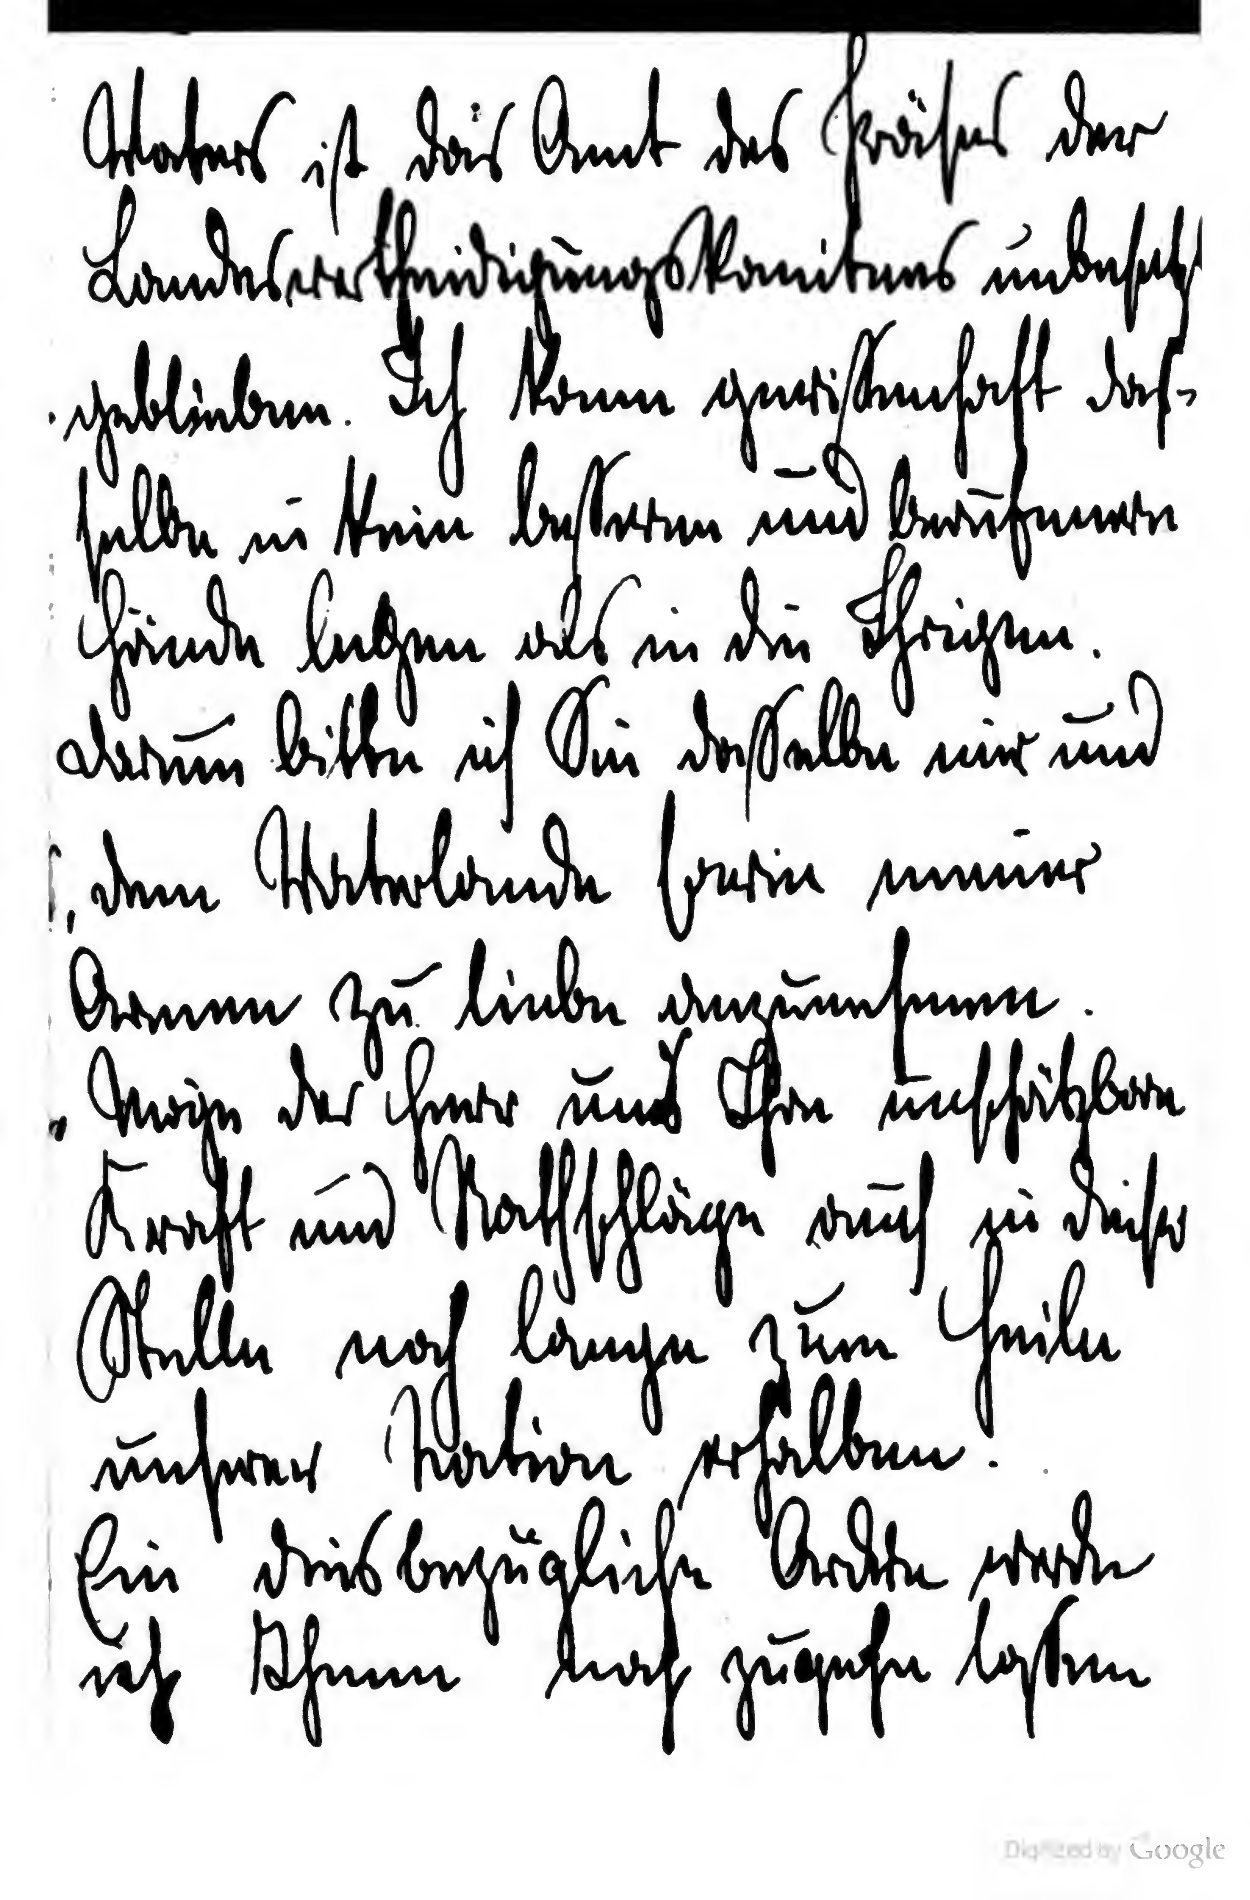 Vaters ist das Amt des Präses der
Landesvertheidigungskomitees unbesetzt
geblieben. Ich kann gewissenhaft das-
selbe in kein besseren und berufenern
Hände legen als in die Ihrigen.
Darum bitte ich Sie dasselbe mir und
dem Vaterlande sowie meiner
Armee zu liebe anzunehmen.
Möge der Herr uns Ihre unschätzbare
Kraft und Rathschläge auch in dieser
Stelle noch lange zum Heile
unserer Nation erhalten.
Ein diesbezügliche Ordre werde
ich Ihnen noch zugehn lassen
Digitized by Google